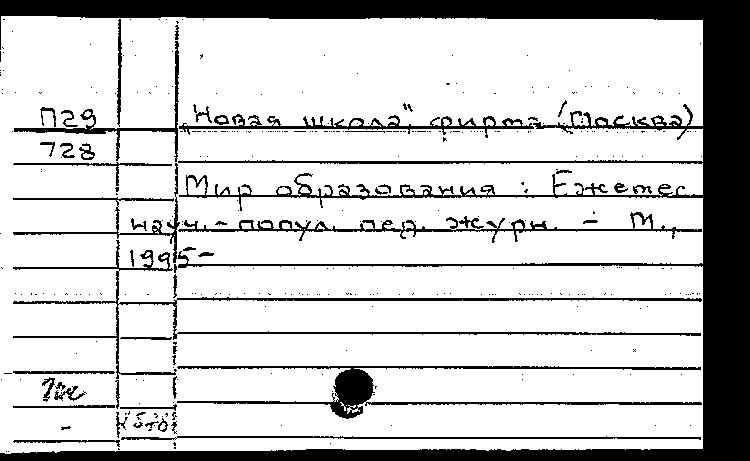 П29 „Новая школа", фирма (Москва)
728
Мир образования : Ежемес.
науч.-попул. пед. журн. – М.,
1995–